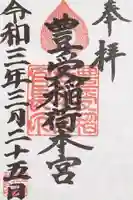 奉拝
豊受稲荷本宮
令和三年二月二十五日